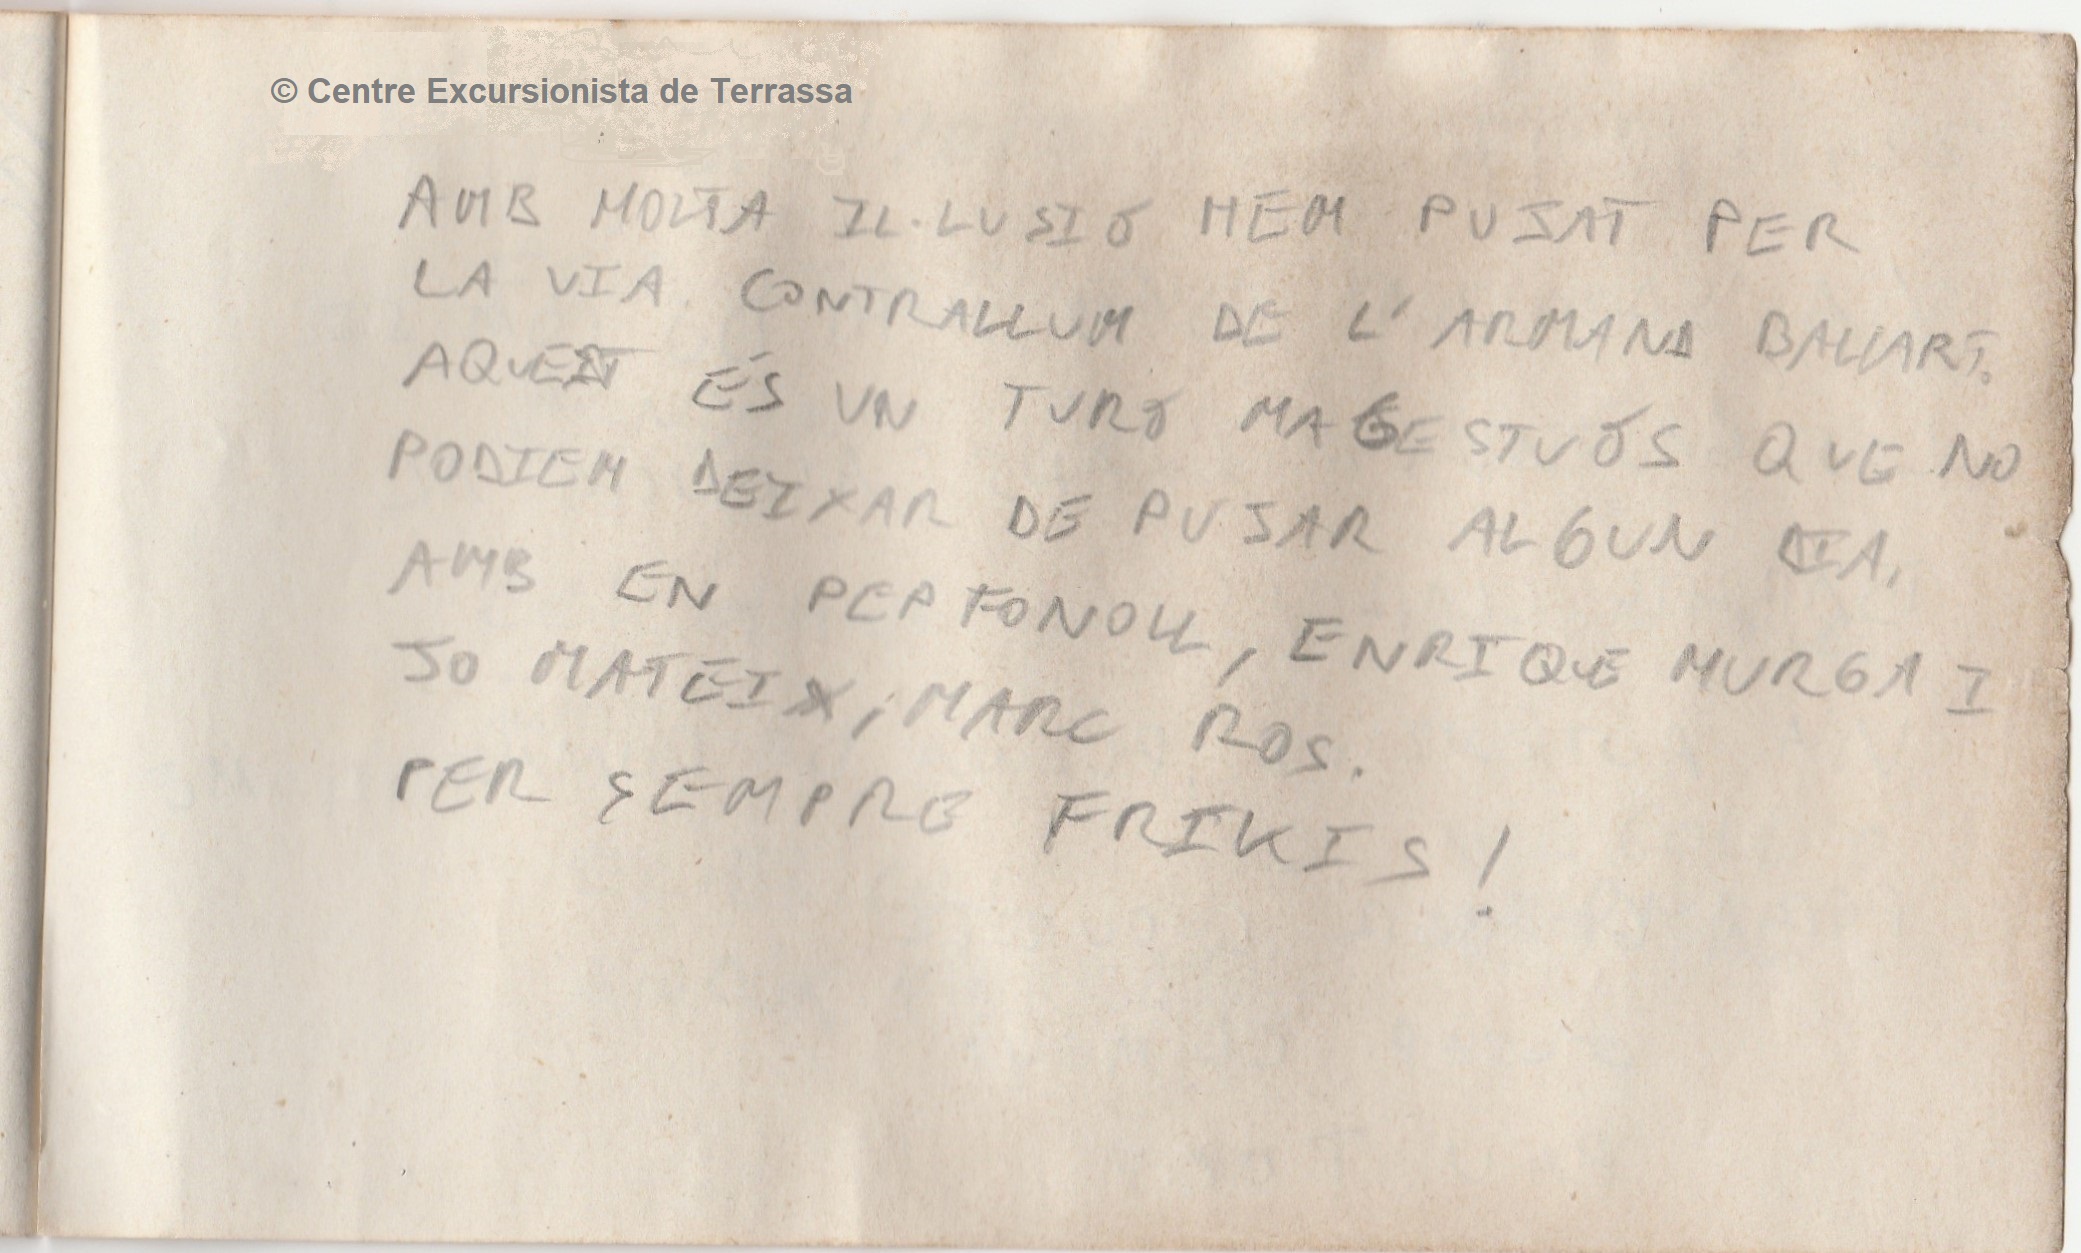 © Centre Excursionista de Terrassa
AMB MOLTA IL·LUSIÓ HEM PUJAT PER
LA VIA CONTRALLUM DE L'ARMAND BALLART.
AQUEST ÉS UN TURÓ MAGESTUÓS QUE NO
PODIEM DEIXAR DE PUJAR ALGUN DIA.
AMB EN PEP FONOLL, ENRIQUE MURGA I
JO MATEIX, MARC ROS.
PER SEMPRE FRIKIS!